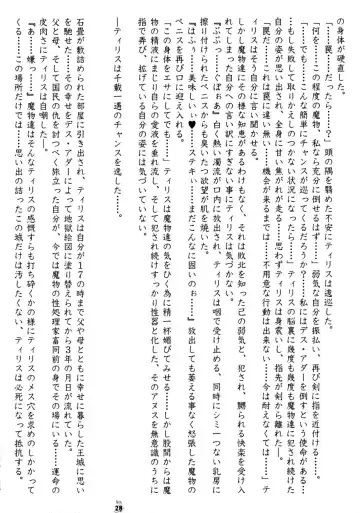 の身体が硬直した。
「……罠……だったら……？」頭の隅を翳めた不安にティリスは逡巡した。
「何をこの程度の魔物、私なら充分に倒せるはず……」弱気な自分を振払い、再び剣に指を近付ける。
「でも……こんな簡単にチャンスが巡ってくるだろうか？……私にはデス・アダーを倒すという使命がある……もし失敗して取りかえしのつかない状況になったら……」ティリスの脳裏に幾度も幾度も魔物達に犯され続けた自分の姿が思い出され、全身に甘い焦れが走る……思わずティリスは身震いし、指先が剣から離れた―。
「……これは罠に違い無い……機会が来るまでは……不用意な行動は出来ない……今は耐えなくては……」ティリスはそう自分に言い聞かせる。
しかし魔物達にその様な知恵があるわけもなく、それは敗北を知った己の弱気と、犯され、嬲られる快楽を受け入れてしまった自分への言い訳にすぎない事にティリスは気づかない。
『ぷぷっ……ぐぽぉぁ』白く熱い濁流が口内に吹き出され、ティリスは咽で受け止める、同時にシミ一つない乳房に擦り付けられたペニスからも臭いたつ欲望が肌を焼いた。
「はふぅ……美味しぃ♥……ステキぃ……まだこんなに固いのぉ……」放出しても萎える事なく怒張した魔物のペニスを再び口に迎え入れる。
自分の身体をエサにしてでも……ティリスは魔物達の気をひく為に精一杯媚びてみせる……しかし股間からは魔物の精液にまじり自らの愛液を垂れ流し、そして犯され続けすっかり性器と化した、そのアヌスを無意識のうちに指で弄び、拡げている自分の姿には気づいていなかった。
ティリスは千載一遇のチャンスを逸した……。
石畳が敷詰められた部屋に引き出され、ティリスは自分が17の時まで父や母とともに暮らしていた王城に思いを馳せた……その幸せをデス・アダーによって地獄絵図に塗り替えられてから3年の月日が流れていた……父を、母を、そして国民の仇を討つべく旅立った自分が、今では魔物の性処理家畜同然の身でその場にいる……運命の皮肉さにティリスは自嘲した。
「あぁ……嫌っ……」魔物達はそんなティリスの感慨すらも打ち砕くかの様にティリスのメス穴を求めのしかかってくる……この場所だけでは……思い出の詰ったこの城だけは汚したくない……ティリスは必死になって抵抗する。
28